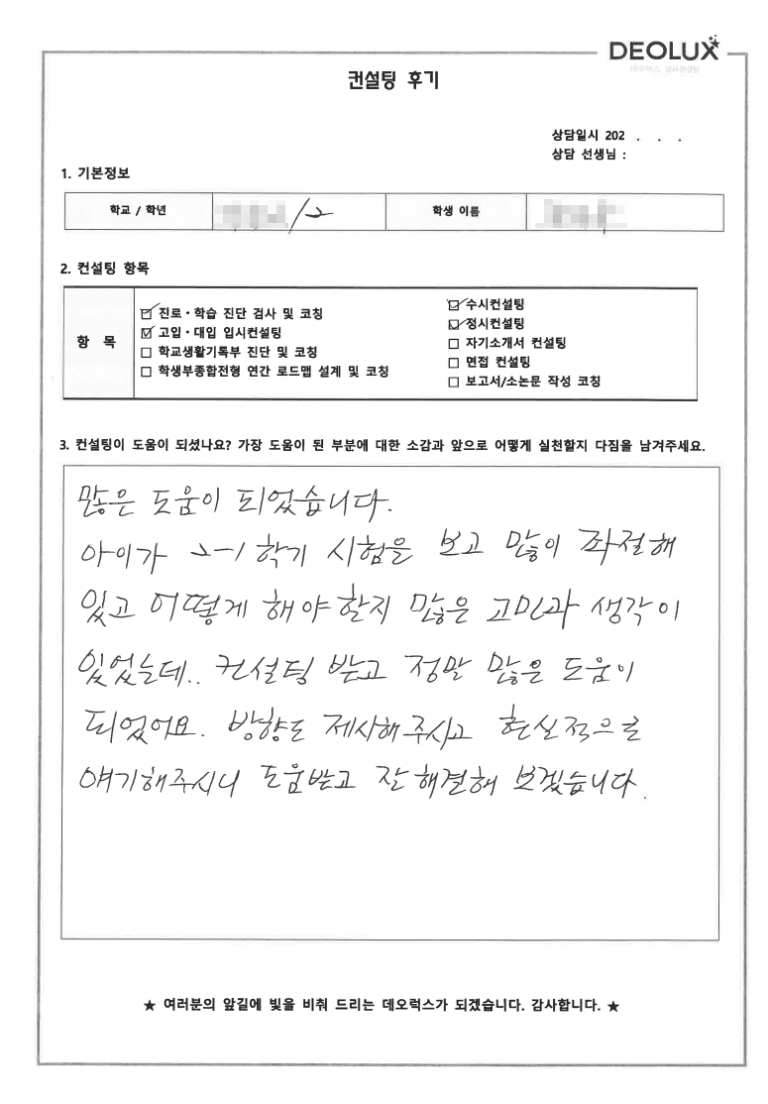 DEOLUX
컨설팅 후기
상담일시 202 . . .
상담 선생님 :
1. 기본정보
학교 / 학년 /2 학생 이름
2. 컨설팅 항목
항 목
☑ 진로·학습 진단 검사 및 코칭
☑ 고입·대입 입시컨설팅
☐ 학교생활기록부 진단 및 코칭
☐ 학생부종합전형 연간 로드맵 설계 및 코칭
☑ 수시컨설팅
☑ 정시컨설팅
☐ 자기소개서 컨설팅
☐ 면접 컨설팅
☐ 보고서/소논문 작성 코칭
3. 컨설팅이 도움이 되셨나요? 가장 도움이 된 부분에 대한 소감과 앞으로 어떻게 실천할지 다짐을 남겨주세요.
많은 도움이 되었습니다.
아이가 2-1학기 시험을 보고 많이 좌절해
있고 어떻게 해야할지 많은 고민과 생각이
있었는데.. 컨설팅 받고 정말 많은 도움이
되었어요. 방향도 제시해주시고 현실적으로
얘기해주시니 도움받고 잘 해결해 보겠습니다.
★ 여러분의 앞길에 빛을 비춰 드리는 데오럭스가 되겠습니다. 감사합니다. ★